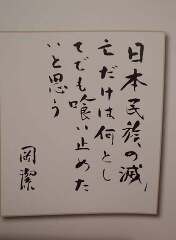 日本民族の滅
亡だけは何とし
てでも喰い止めた
いと思う
岡潔